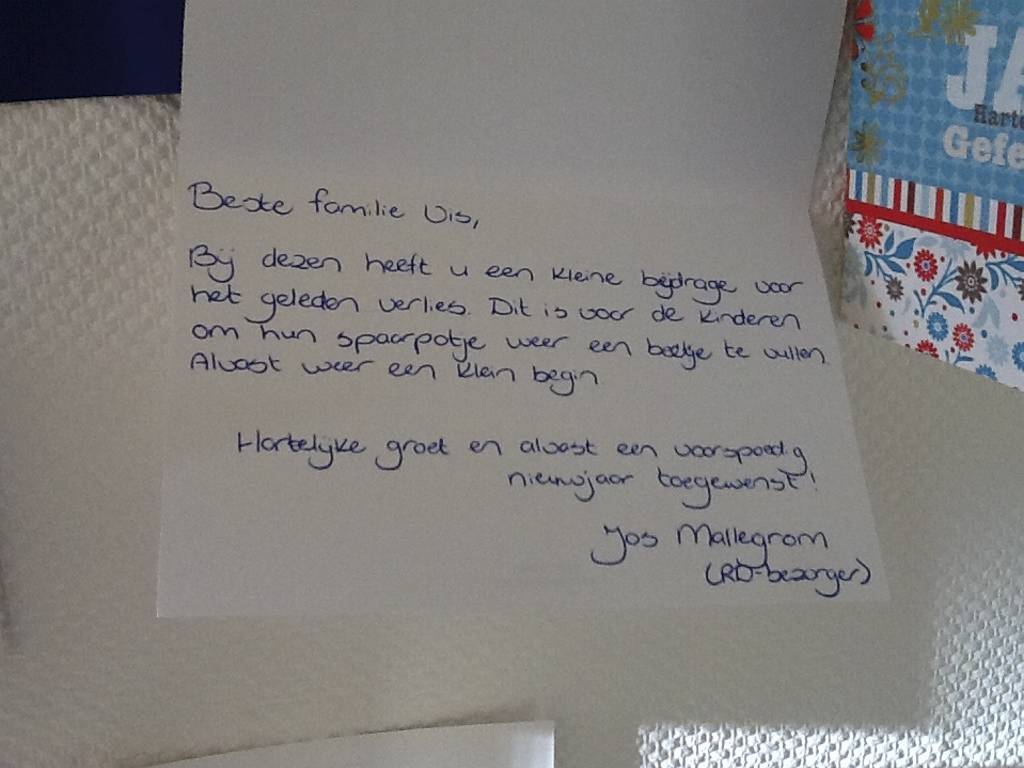 Beste familie Vis,
Bij dezen heeft u een kleine bijdrage voor
het geleden verlies. Dit is voor de kinderen
om hun spaarpotje weer een beetje te vullen.
Alvast weer een klein begin
Hartelijke groet en alvast een voorspoedig
nieuwjaar toegewenst!
Jos Mallegrom
(RD-bezorger)
JA
Harte
Gefe